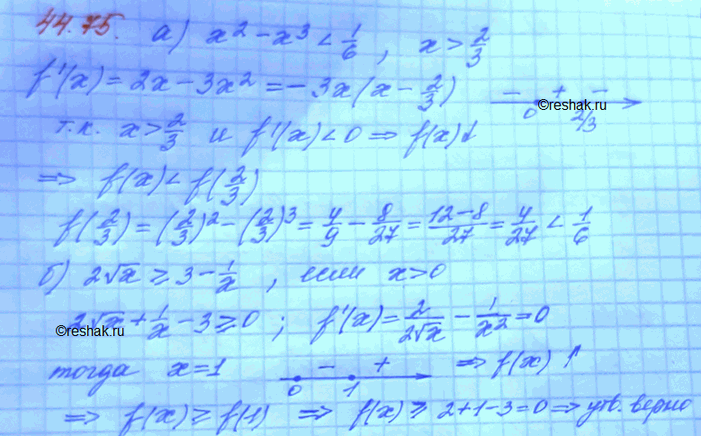 44.75. а) x² - x³ < 1/6 , x > 2/3
f'(x) = 2x - 3x² = -3x(x - 2/3) - + - 0 2/3
©reshak.ru
т.к. x > 2/3 и f'(x) < 0 ⇒ f(x)↓
⇒ f(x) < f(2/3)
f(2/3) = (2/3)² - (2/3)³ = 4/9 - 8/27 = (12-8)/27 = 4/27 < 1/6
б) 2√x ≥ 3 - 1/x , если x > 0
2√x + 1/x - 3 ≥ 0 ; f'(x) = 2/(2√x) - 1/x² = 0
©reshak.ru
тогда x = 1 - + 0 1 ⇒ f(x) ↑
⇒ f(x) ≥ f(1) ⇒ f(x) ≥ 2+1-3 = 0 ⇒ утв. верно